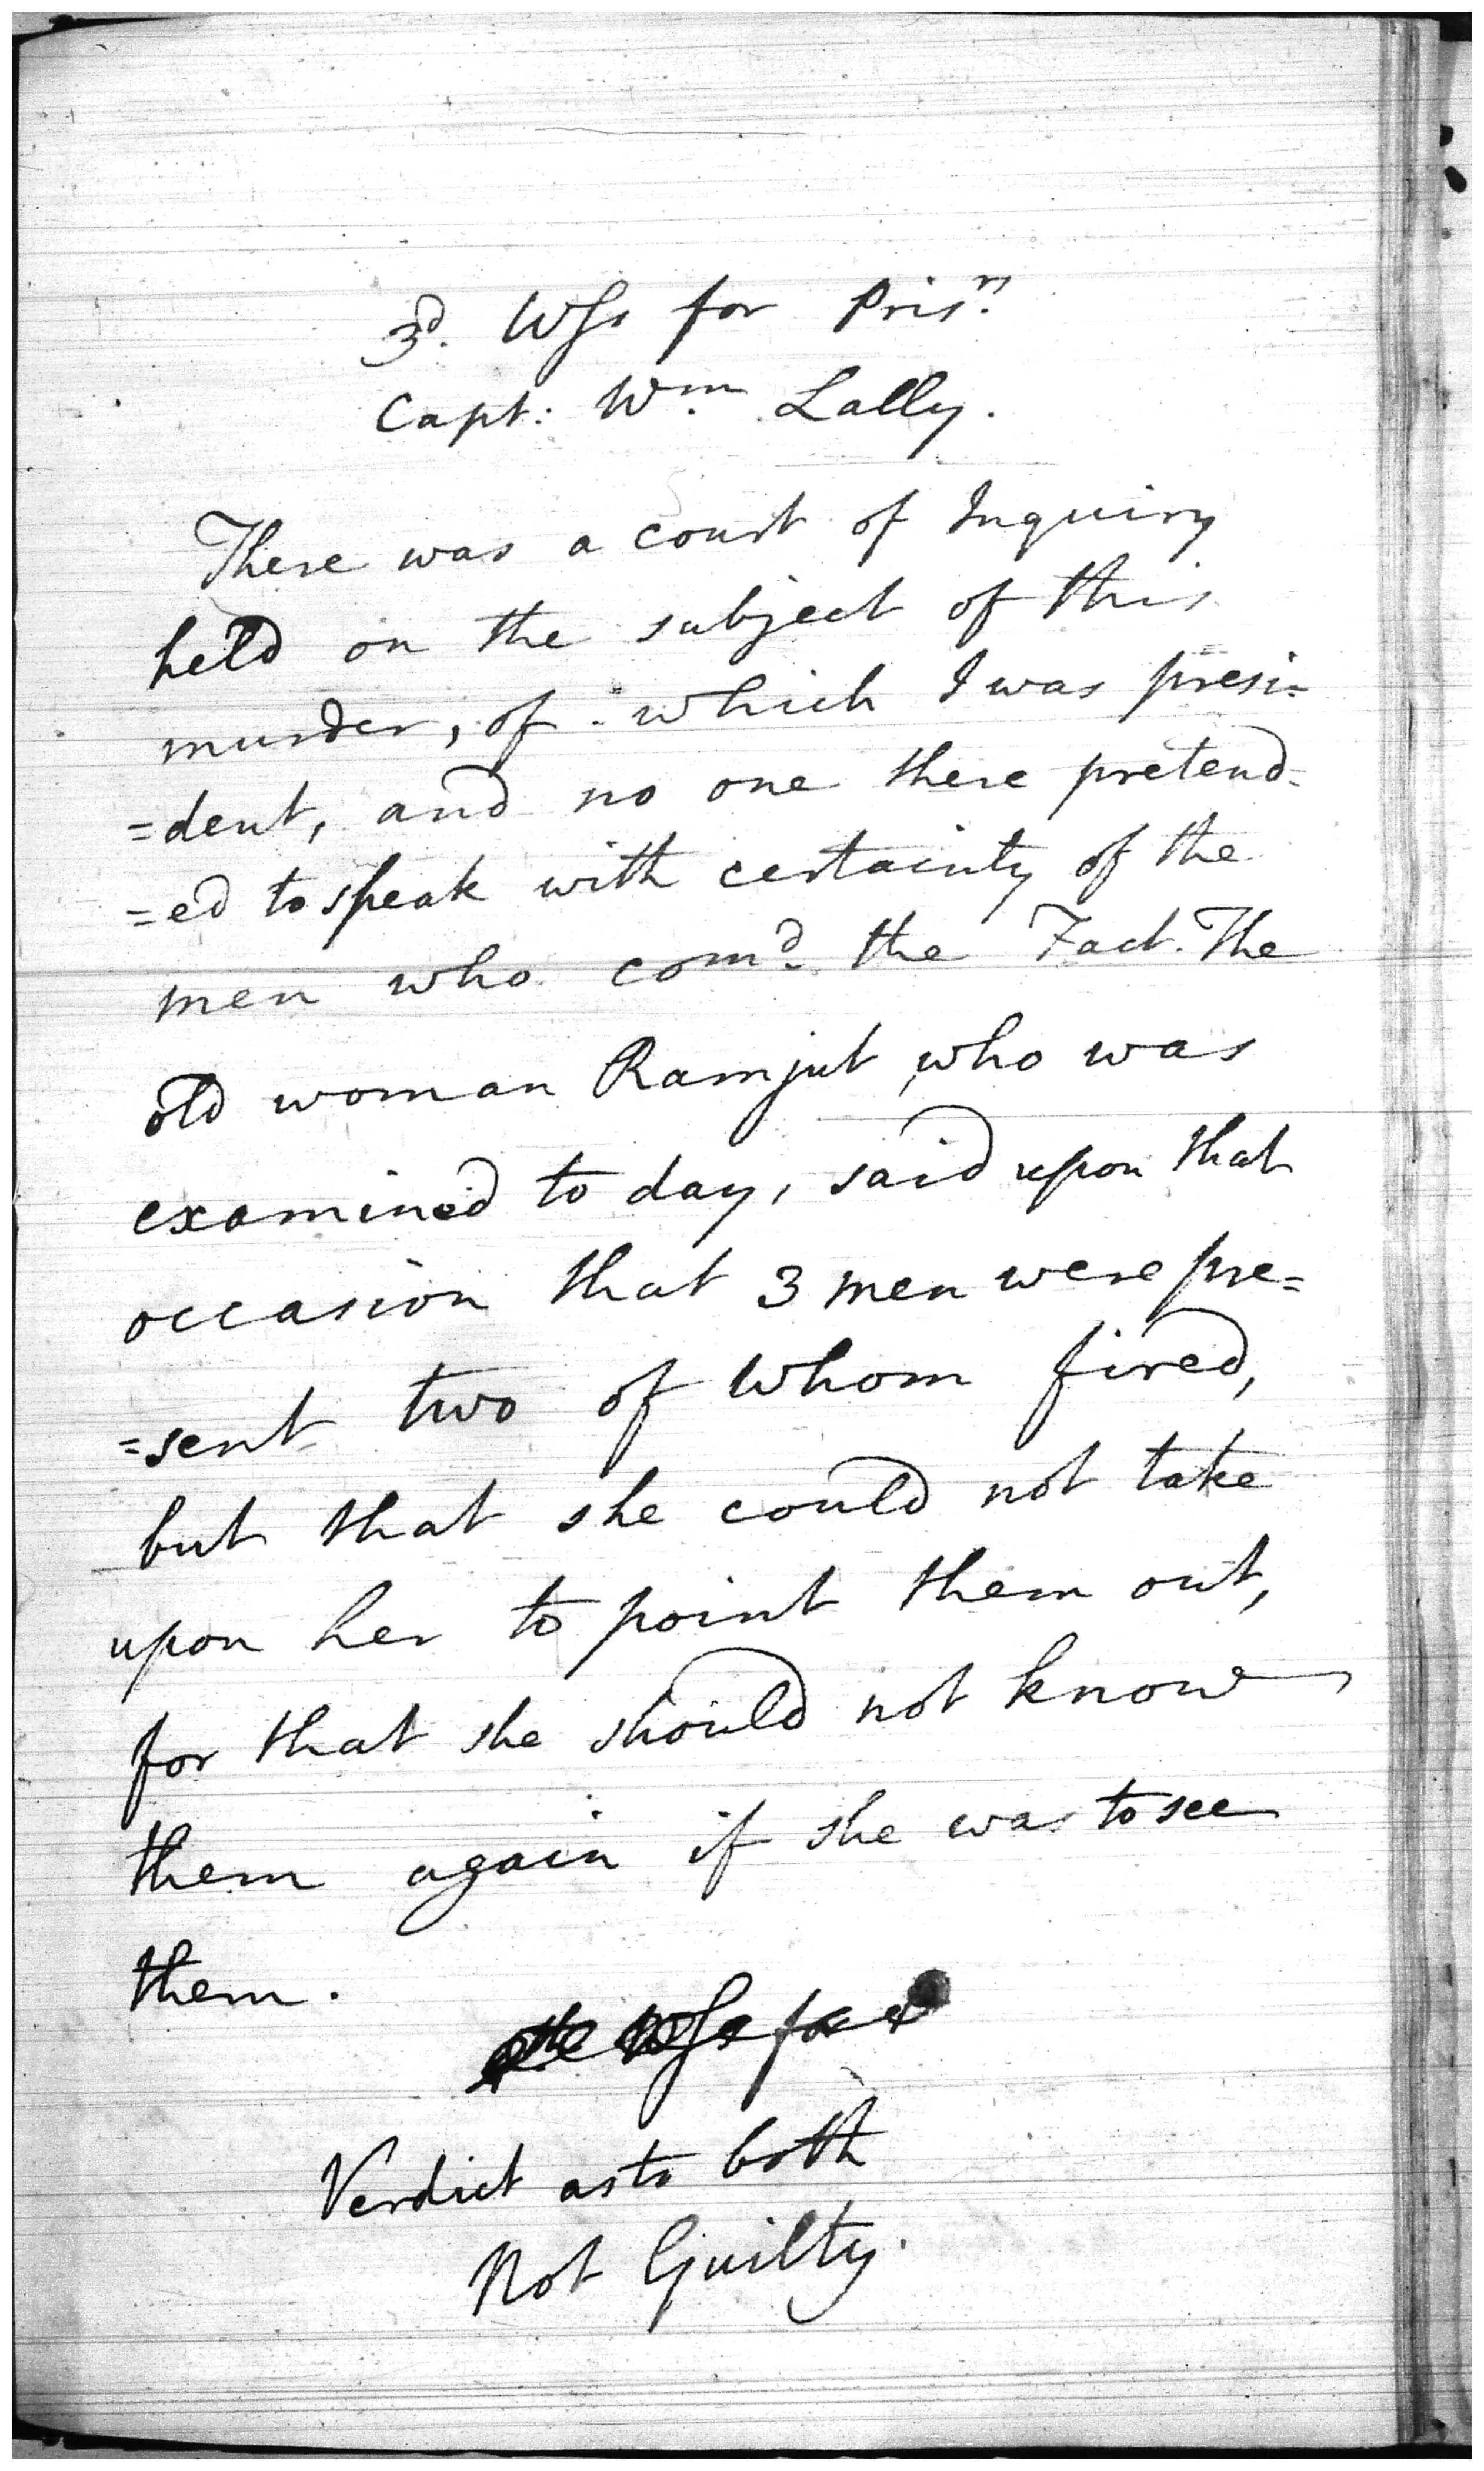 3d. Wss for Prisr.
Capt: Wm. Lally.
There was a court of Inquiry
held on the subject of this
murder, of which I was presi=
=dent, and no one there pretend=
=ed to speak with certainty of the
men who comd. the Fact. The
old woman Ramjut, who was
examined to day, said upon that
occasion that 3 men were pre=
=sent two of whom fired,
but that she could not take
upon her to point them out,
for that she should not know
them again if she was to see
them.
Verdict as to both
Not Guilty.